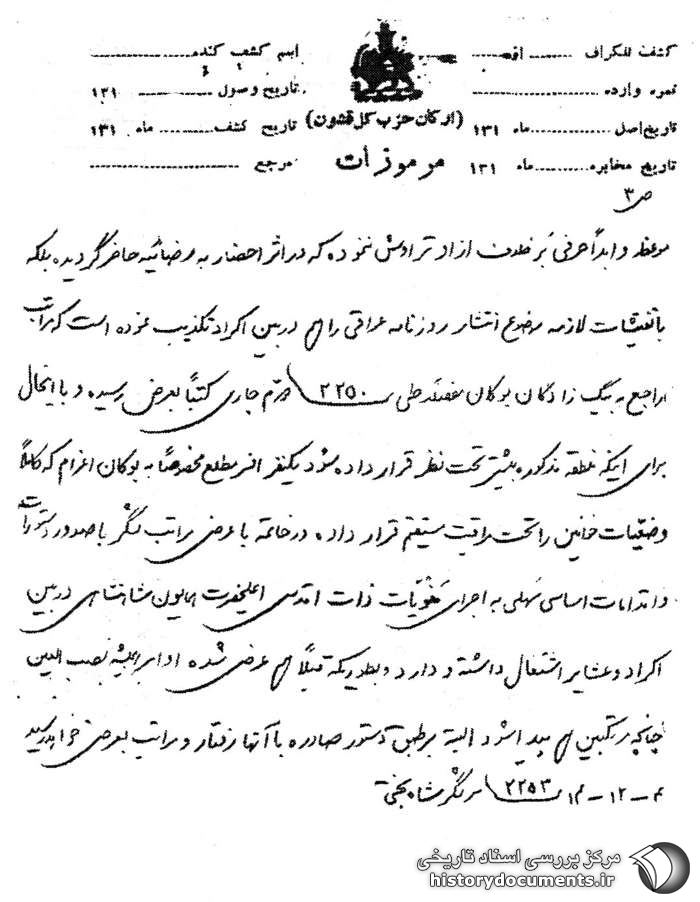 کشف تلگراف ........ از ........ اسم کشف کننده ........
نمره وارده ........ تاریخ وصول ........ ۱۳۱
تاریخ اصل ........ ماه ۱۳۱ (ارکان حزب کل قشون) تاریخ کشف ........ ماه ۱۳۱
تاریخ مخابره ........ ماه ۱۳۱ مرموزات مرجع ........
ص ۳
و ابداً حرفی بر خلاف از او تراوش ننموده که در اثر احضار به رضائیه حاضر گردیده بلکه
با تفتیشات لازمه موضوع انتشار روزنامه عراقی را هم در بین اکراد تکذیب نموده است که مراتب
راجع به بیگ زادگان بوکان مفصلا طی ۲۲۵۰ جاری کتباً بعرض رسیده و با اینحال
برای اینکه منطقه مذکوره بیشتر تحت نظر قرار داده شود یکنفر افسر مطلع مخصوصاً به بوکان اعزام که کاملاً
وضعیات خوانین را تحت مراقبت مستقیم قرار داده در خاتمه با عرض مراتب تشکر با صدور دستورات
و اقدامات اساسی به اجرای منویات ذات اقدس اعلیحضرت همایون شاهنشاهی در بین
اکراد و عشایر اشتغال داشته و دارد و بطوریکه قبلاً هم عرض شده اوامر همیشه نصب العین
چنانچه مرتکبین هم پیدا شود البته بر طبق دستور صادره با آنها رفتار و مراتب بعرض خواهد رسید
۴-۱۲-۱۴ ۲۲۵۳ سرلشگر شاه بختی
مرکز بررسی اسناد تاریخی
historydocuments.ir